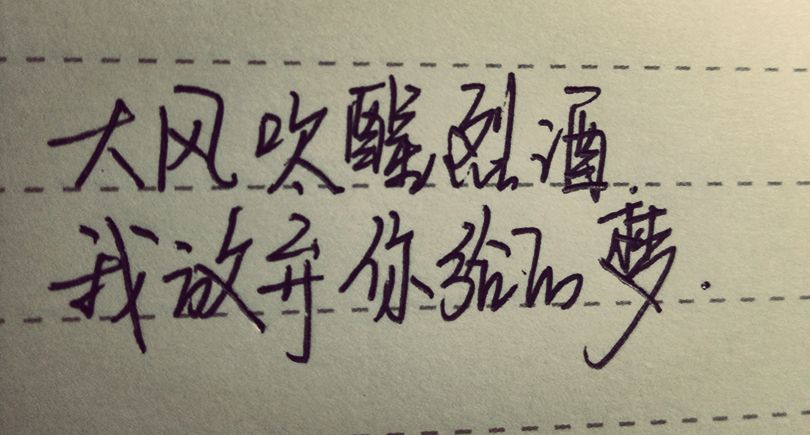 大风吹醒烈酒.
我放弃你给的梦.